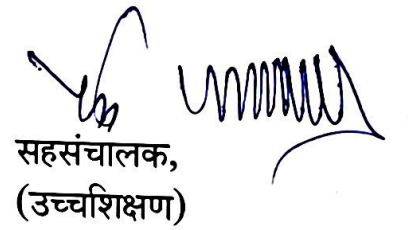 सहसंचालक,
(उच्चशिक्षण)